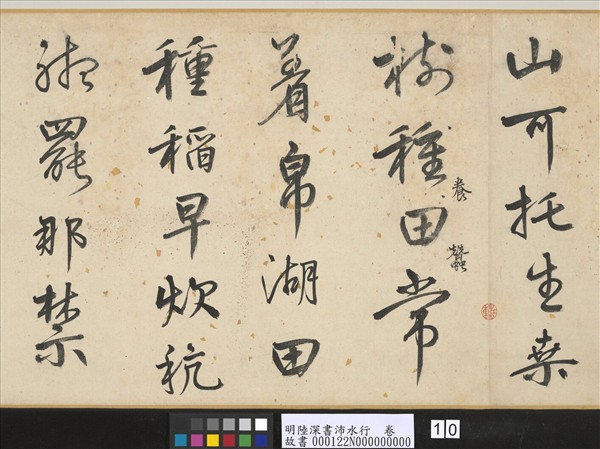 山可托生桑
樹種田常
養蠶
着帛湖田
種稻早炊秔
罷那禁
明陸深書沛水行 卷
故書 000122N000000000
10